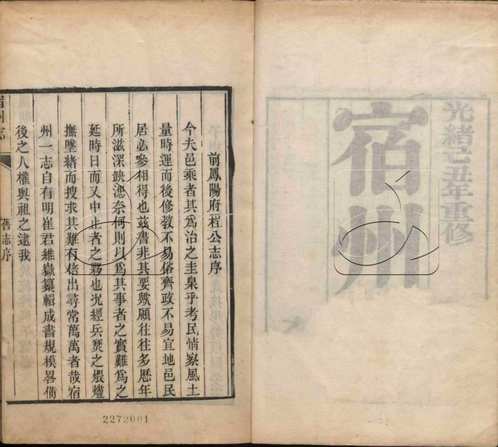 光緒己丑年重修
宿州
前鳳陽府程公志序
今夫邑乘者其爲治之圭臬乎考民情察風土
量時運而後修教不易俗齊政不易宜地邑民
居必參相得也茲書非其要歟顧往往多歷年
所滋深缺 奈何則以爲其事者之實難爲之
延時日而又中止者之夥也況經兵燹之煨燼
撫墜緒而搜求其難有倍出尋常萬萬者哉宿
州一志自有明崔君維嶽纂輯成書規模畧備
後之人權輿祖之逮我
舊志序
2272001